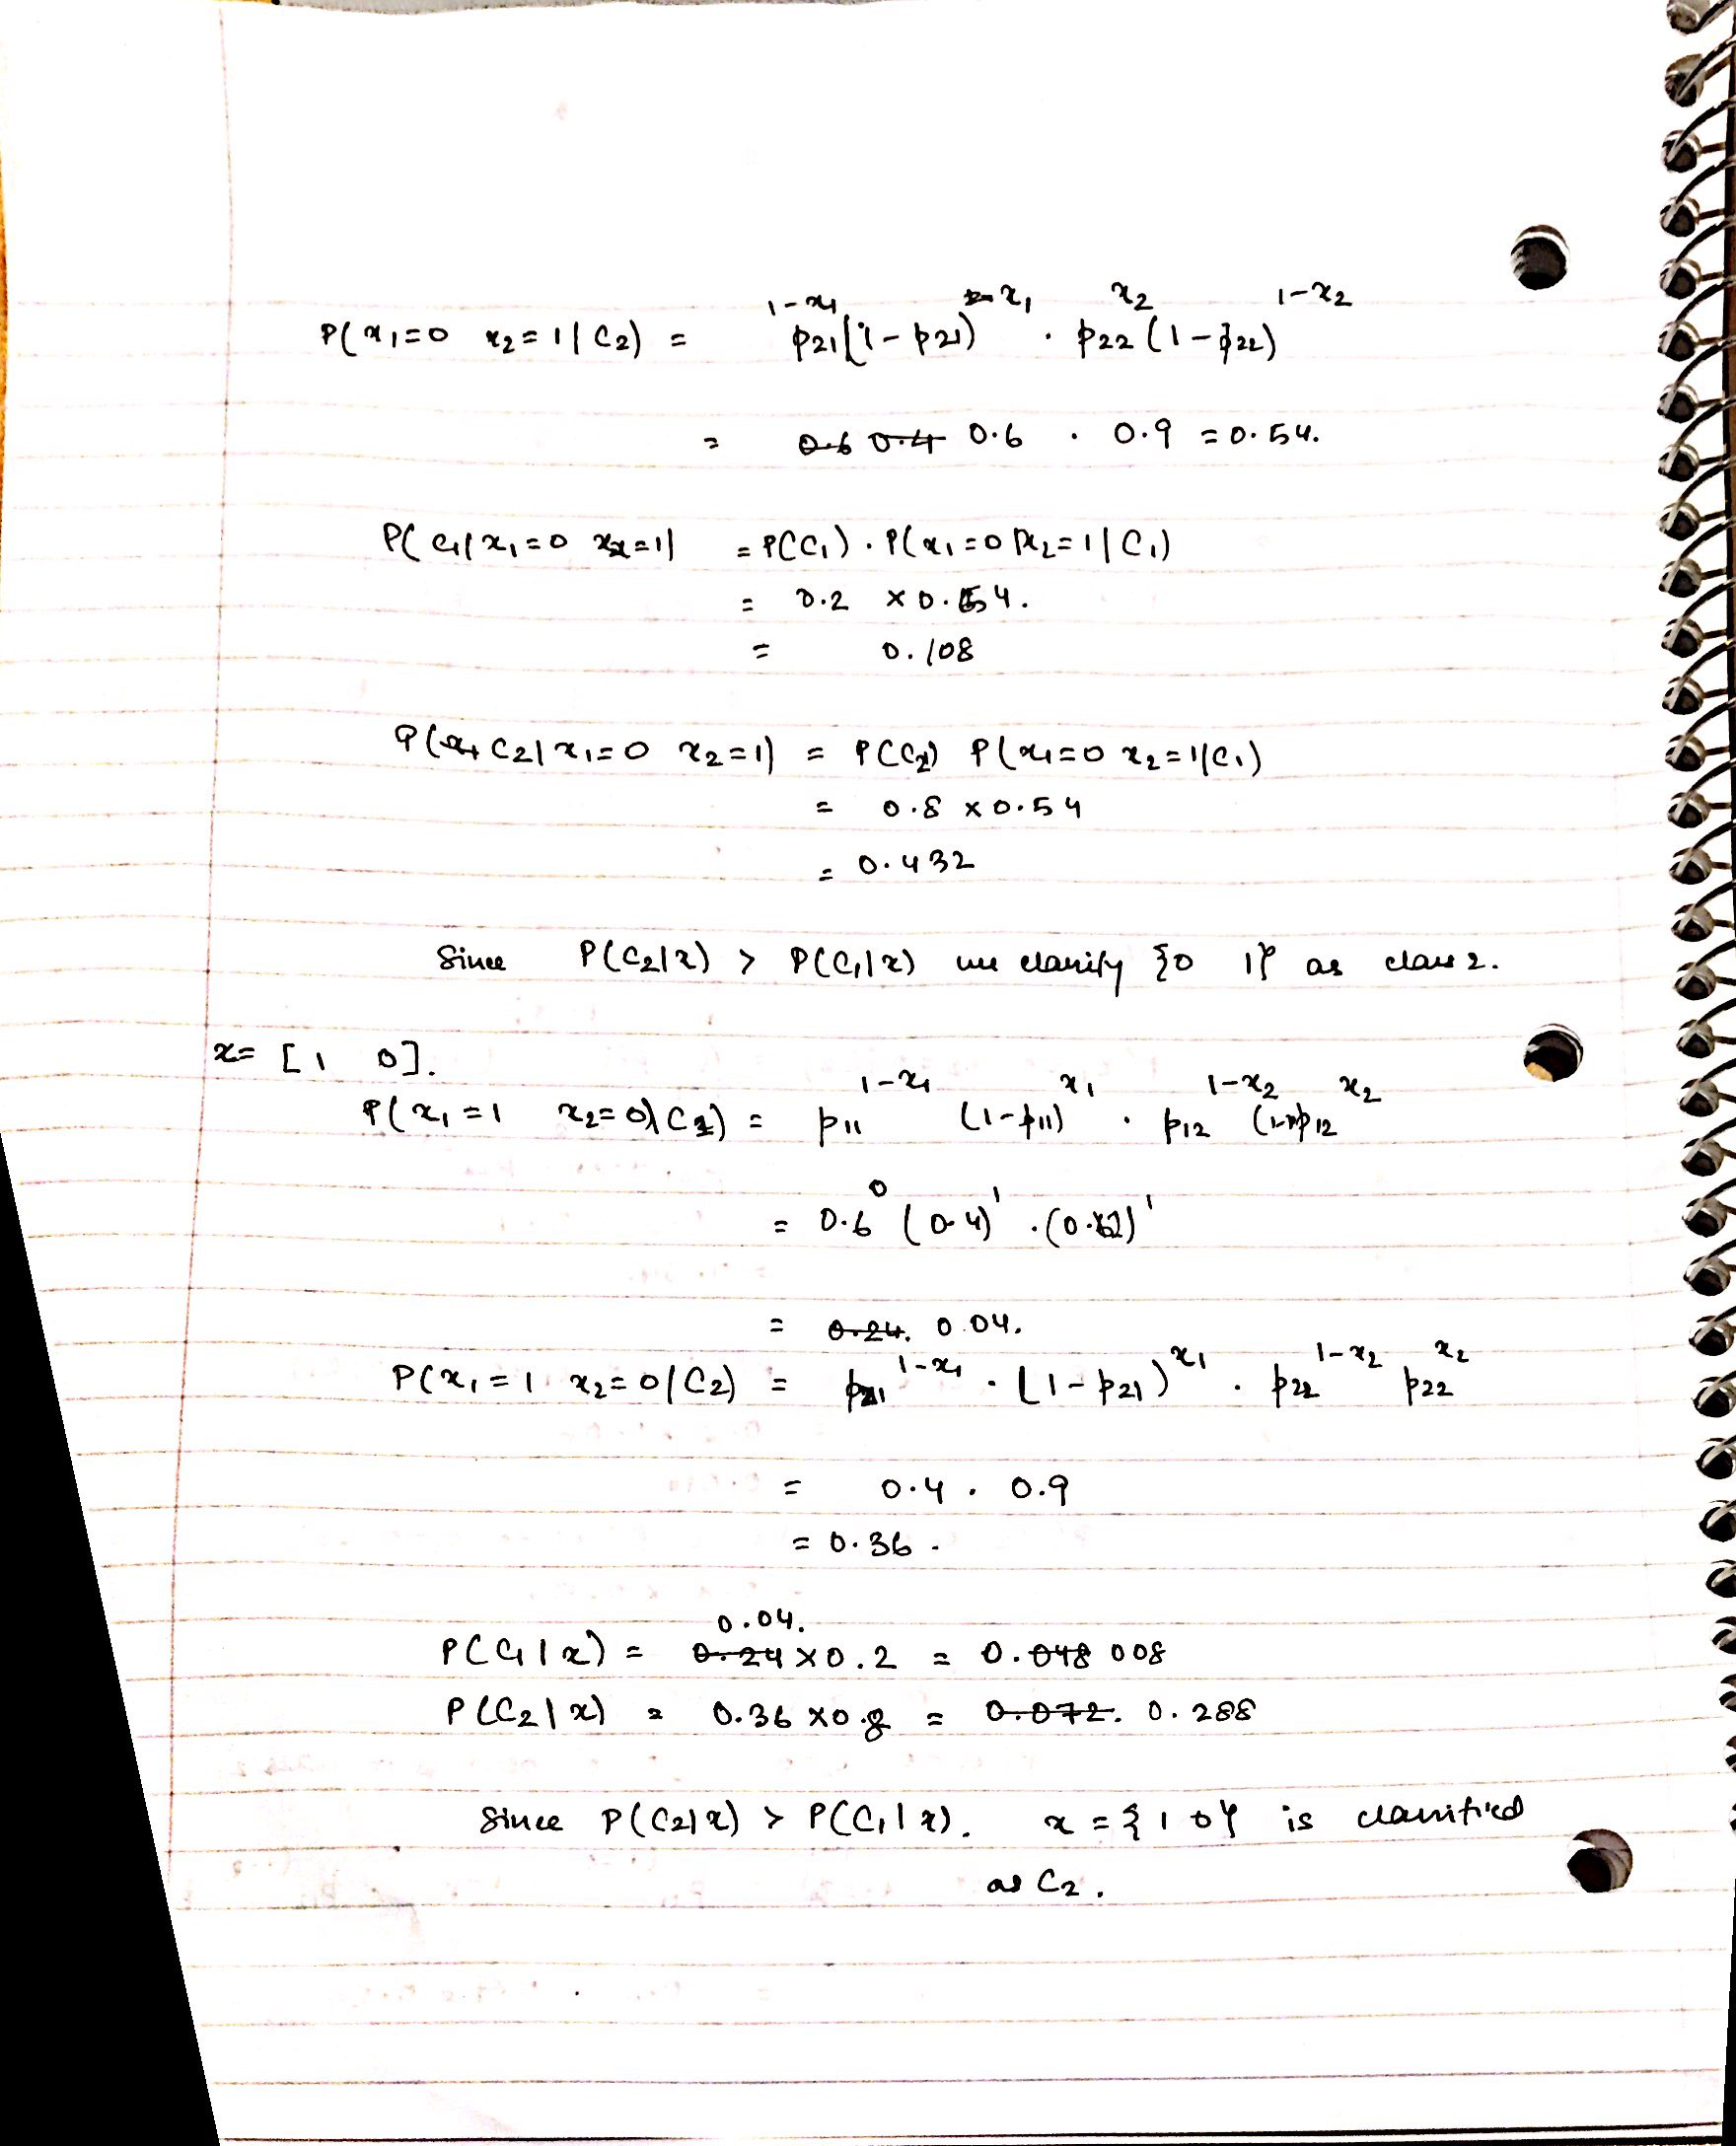 P(x₁=0 x₂=1|C₂) = p₂₁^(1-x₁) (1-p₂₁)^(x₁) · p₂₂^(x₂) (1-p₂₂)^(1-x₂)
= ~~0.6~~ ~~0.4~~ 0.6 · 0.9 = 0.54.
P(C₁|x₁=0 x₂=1) = P(C₁) · P(x₁=0 x₂=1|C₁)
= 0.2 × 0.54.
= 0.108
P(C₂|x₁=0 x₂=1) = P(C₂) P(x₁=0 x₂=1|C₁)
= 0.8 × 0.54
= 0.432
Since P(C₂|x) > P(C₁|x) we classify {0 1} as class 2.
x = [1 0].
P(x₁=1 x₂=0|C₁) = p₁₁^(1-x₁) (1-p₁₁)^(x₁) · p₁₂^(1-x₂) (1-p₁₂)^(x₂)
= 0.6⁰ (0.4)¹ · (0.1)¹
= ~~0.24.~~ 0.04.
P(x₁=1 x₂=0|C₂) = p₂₁^(1-x₁) · (1-p₂₁)^(x₁) · p₂₂^(1-x₂) p₂₂^(x₂)
= 0.4 · 0.9
= 0.36.
0.04.
P(C₁|x) = ~~0.24~~ × 0.2 = 0.~~048~~ 008
P(C₂|x) = 0.36 × 0.8 = ~~0.072.~~ 0.288
Since P(C₂|x) > P(C₁|x). x = {1 0} is classified
as C₂.